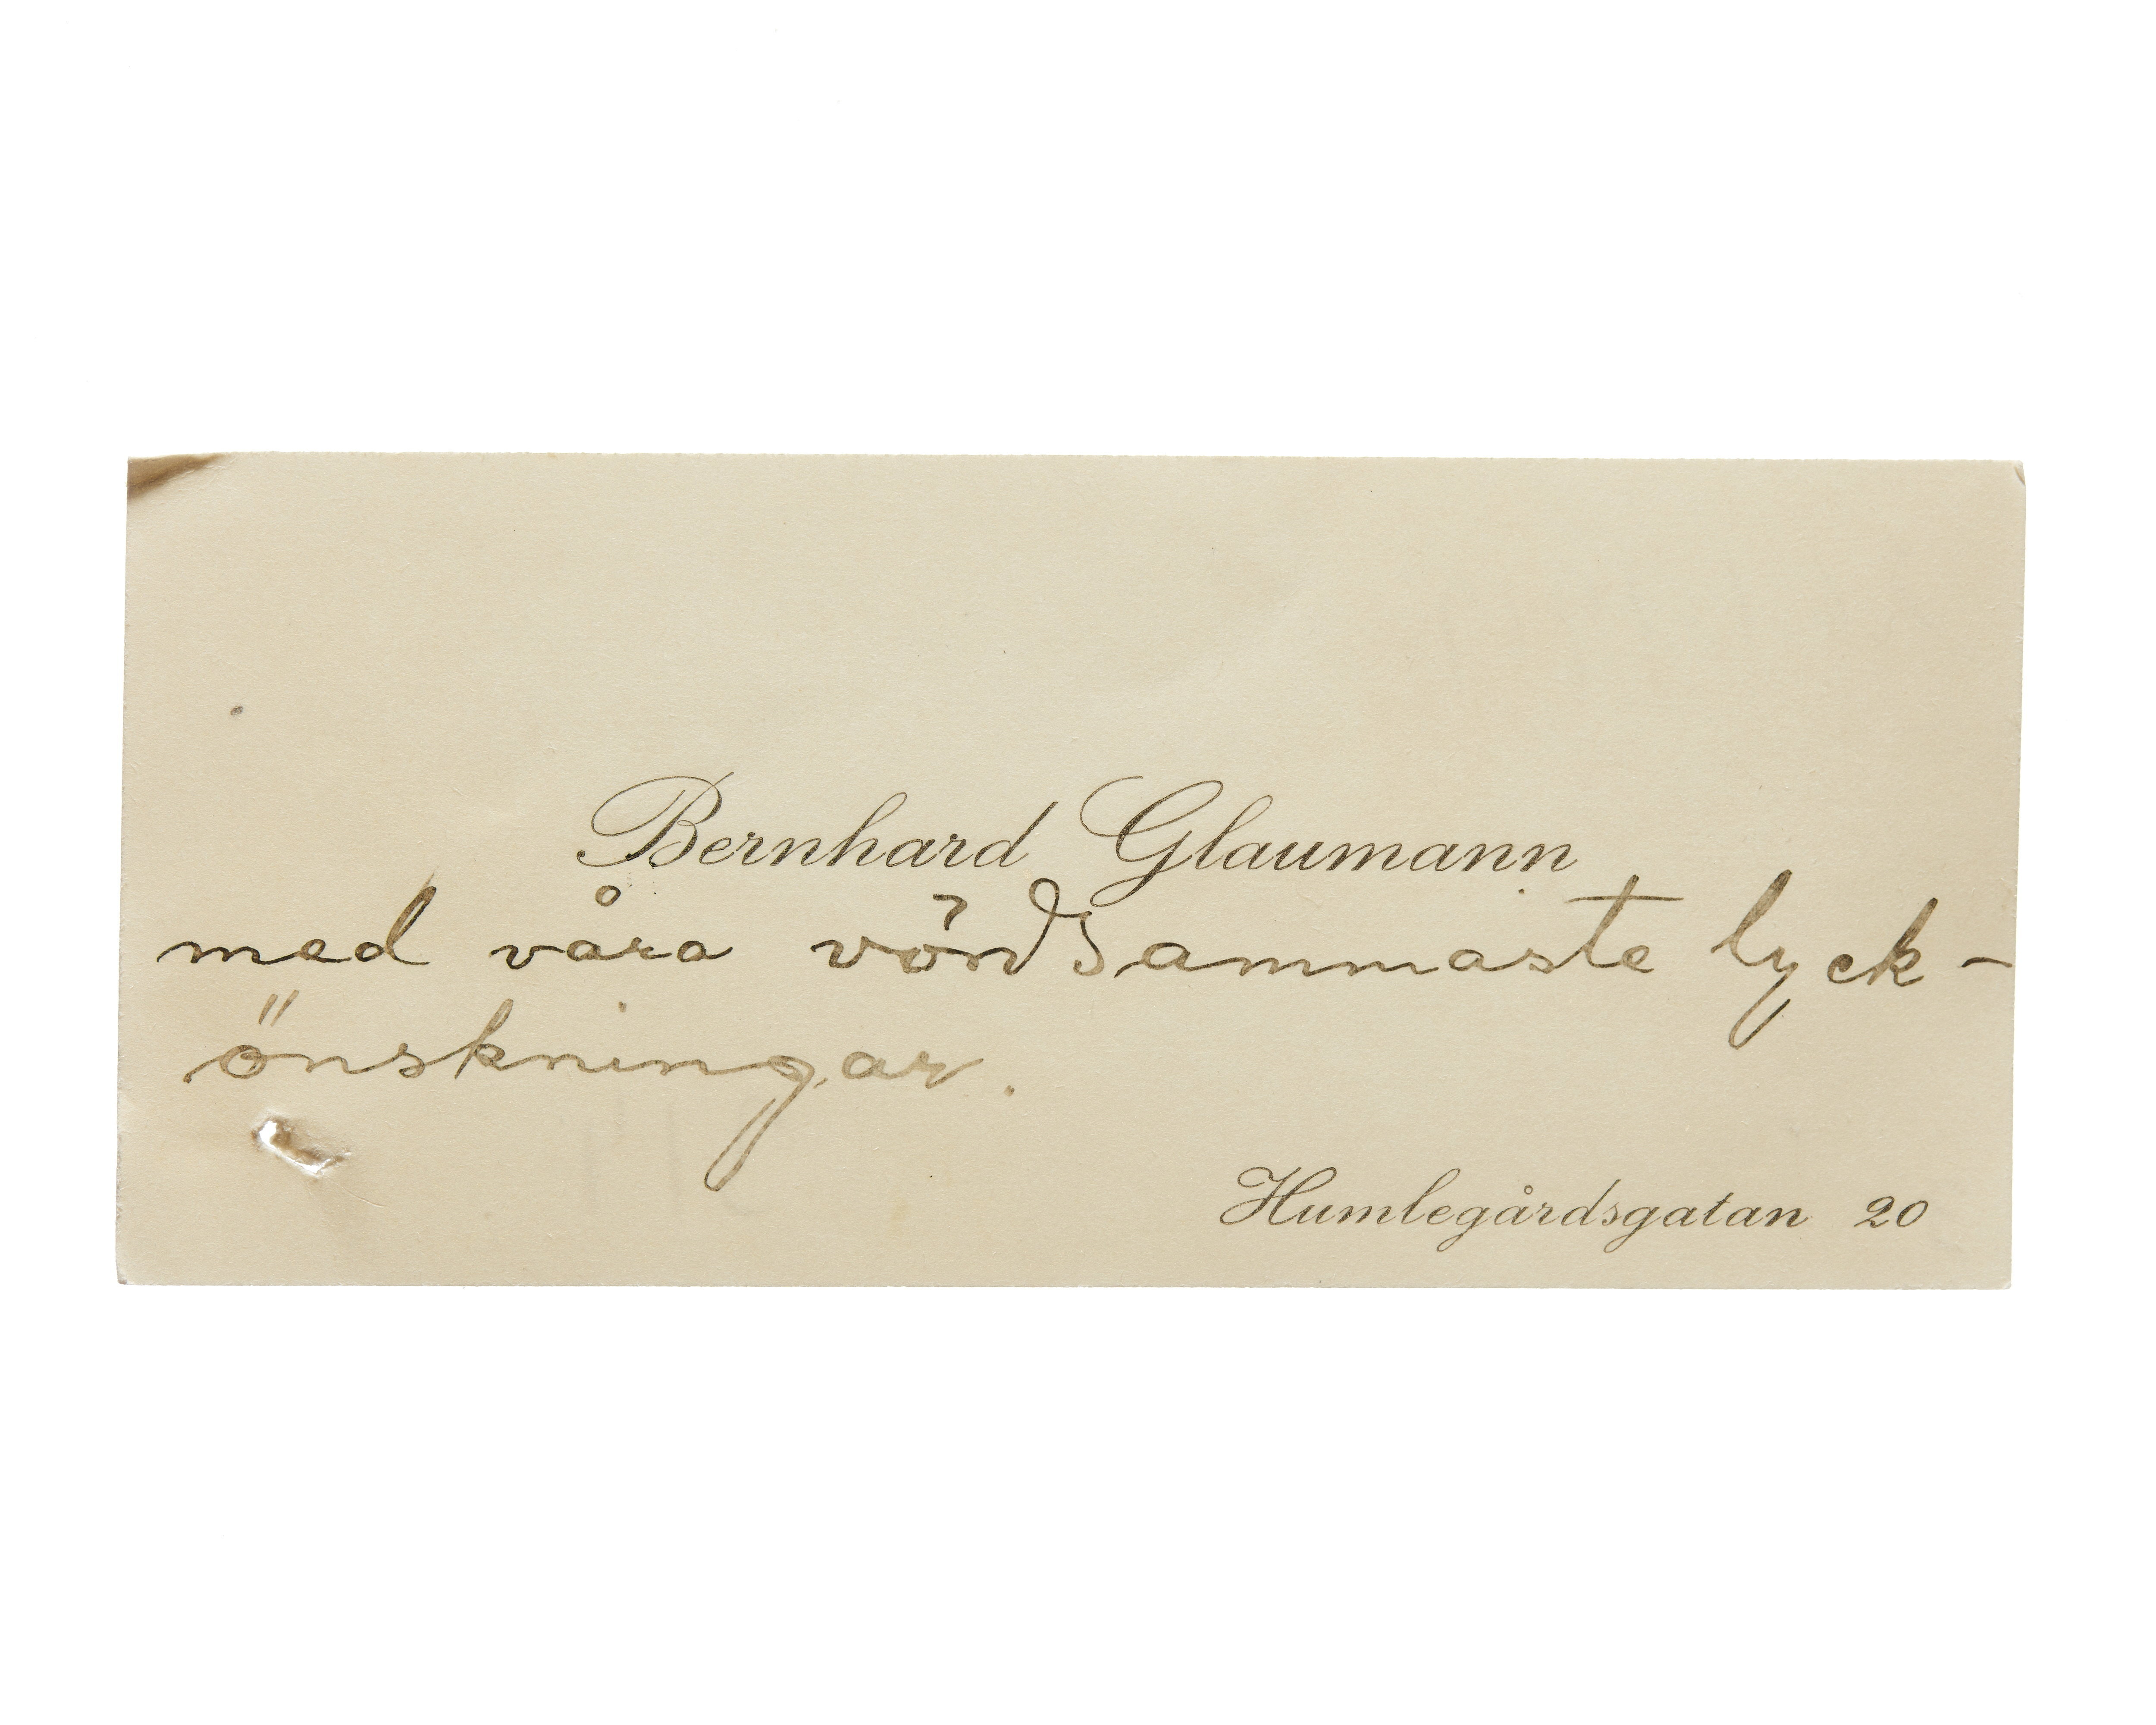 Bernhard Glaumann
med våra vördsammaste lyck-
önskningar.
Humlegårdsgatan 20